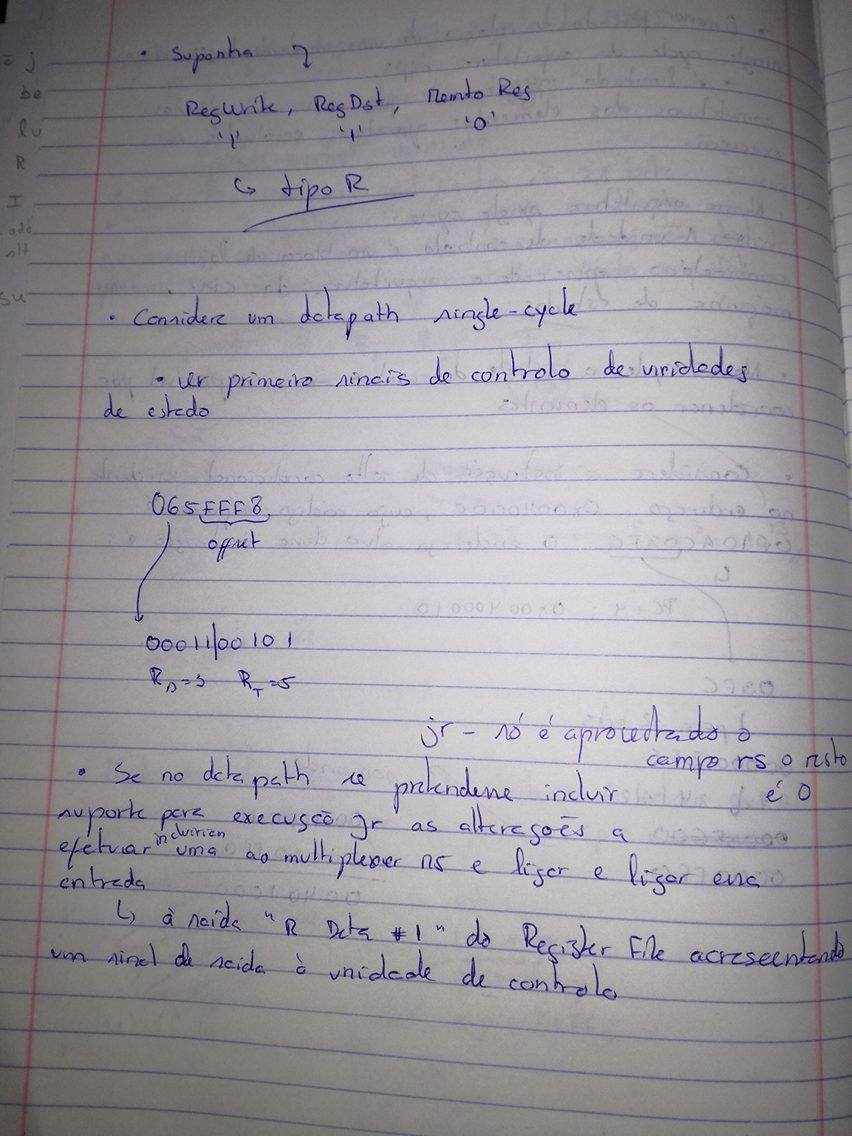 • Suponha
RegWrite, RegDst, MemtoReg
'1' '1' '0'
↳ tipo R
• Considere um datapath single-cycle
• ver primeiro sinais de controlo de unidades
de estado
065FFF8
offset
00011|00101
R_D=3 R_T=5
jr - só é aproveitado o
campo rs o resto
é 0
• Se no datapath se pretendesse incluir
suporte para execução jr as alterações a
efetuar incluiriam uma ao multiplexer ns e ligar e ligar essa
entrada
↳ à saída "R Data #1" do Register File acrescentando
um sinal de saída à unidade de controlo